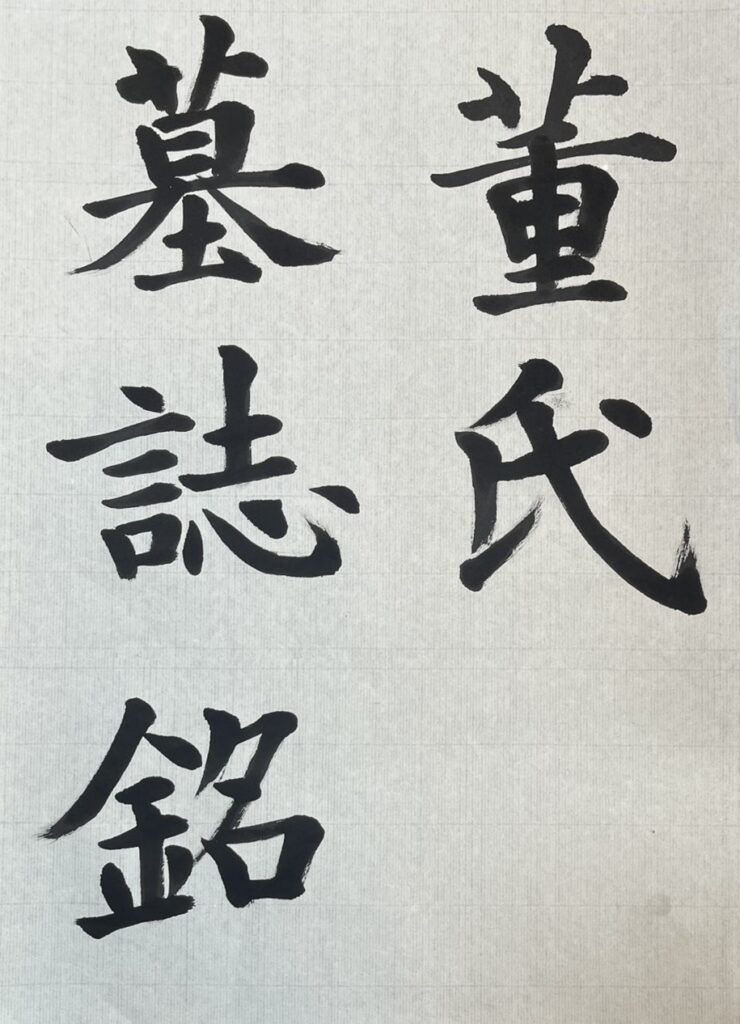 董氏
墓誌銘